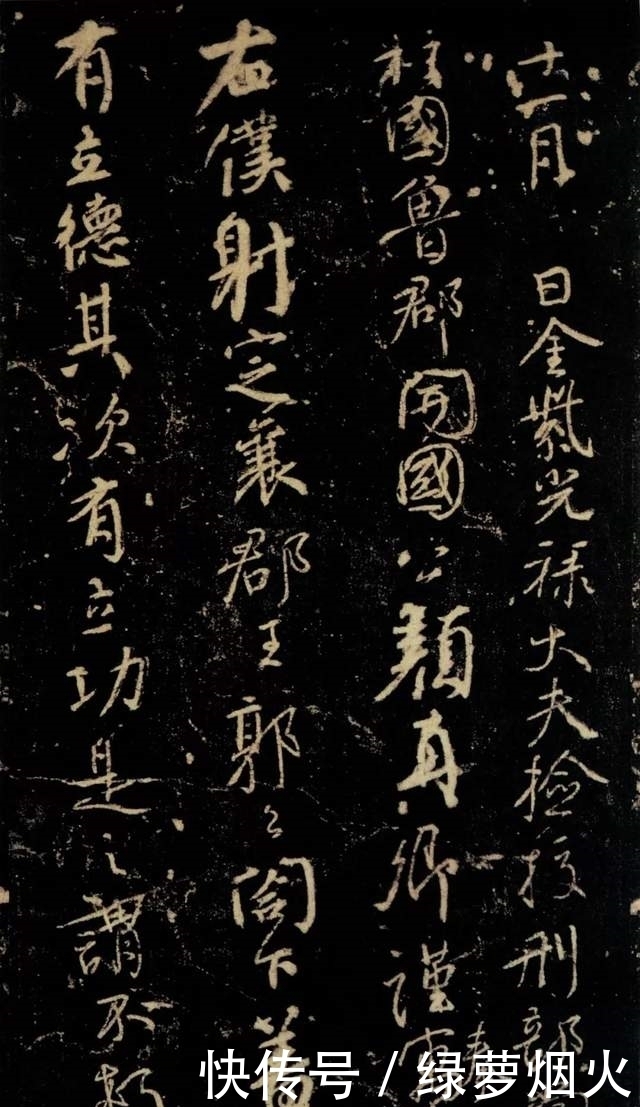 十一月 日金紫光祿大夫檢校刑部
柱國魯郡開國公顏真卿謹
右僕射定襄郡王郭公閤下蓋
有立德其次有立功是之謂不朽
快传号 / 绿萝烟火